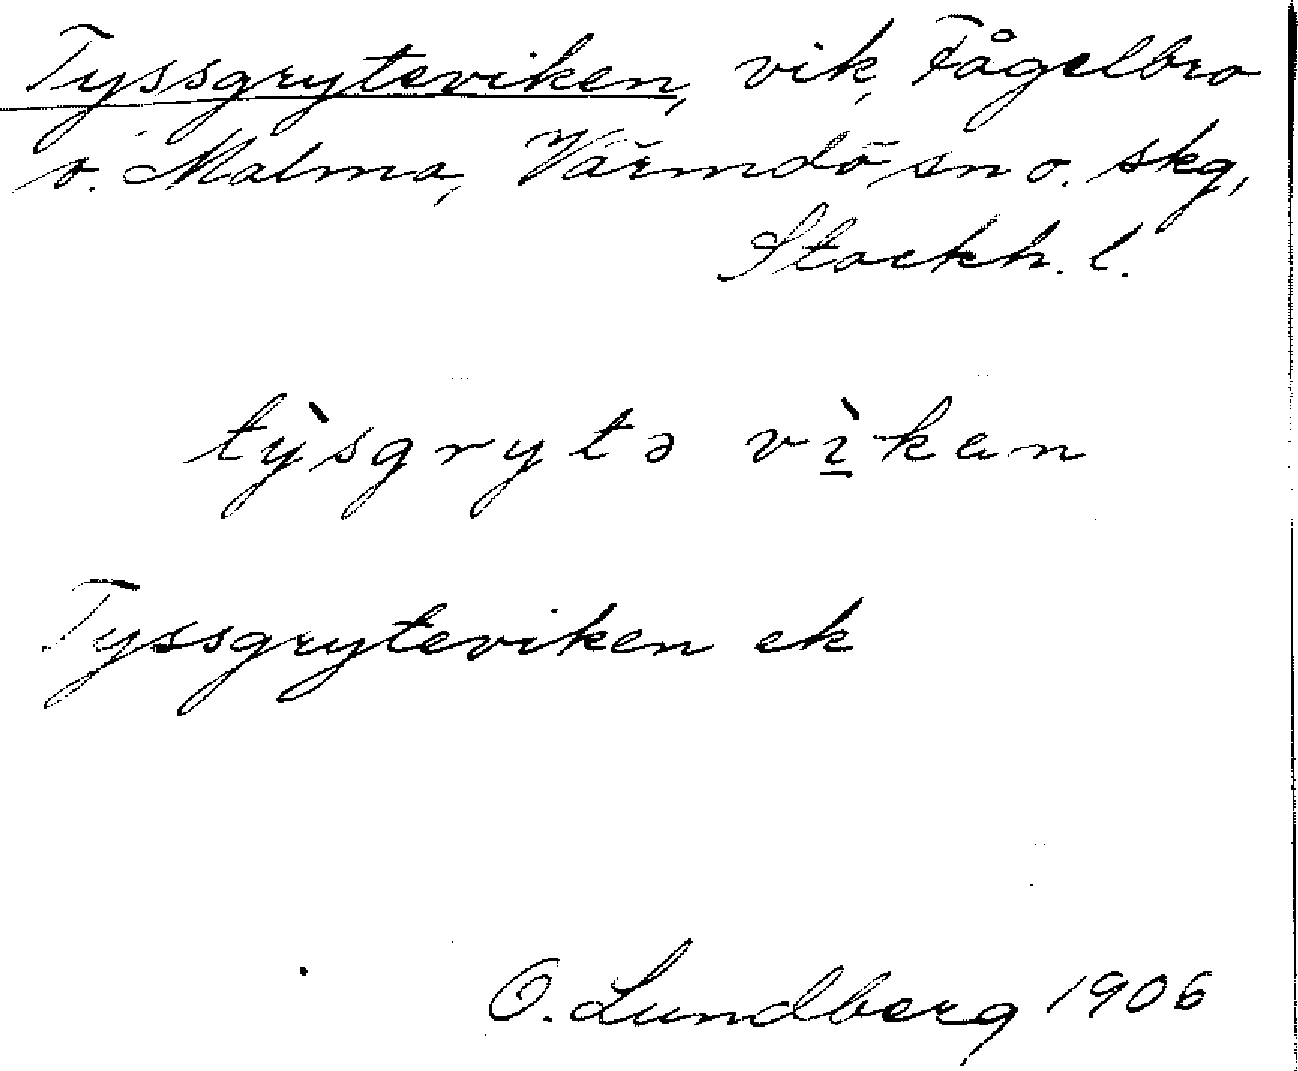 Tyssgryteviken, vik, Fågelbro
o. Malma, Värmdö sn o. skg,
Stockh. l.
tỳsgrytə vìkən
Tyssgryteviken ek
O. Lundberg 1906